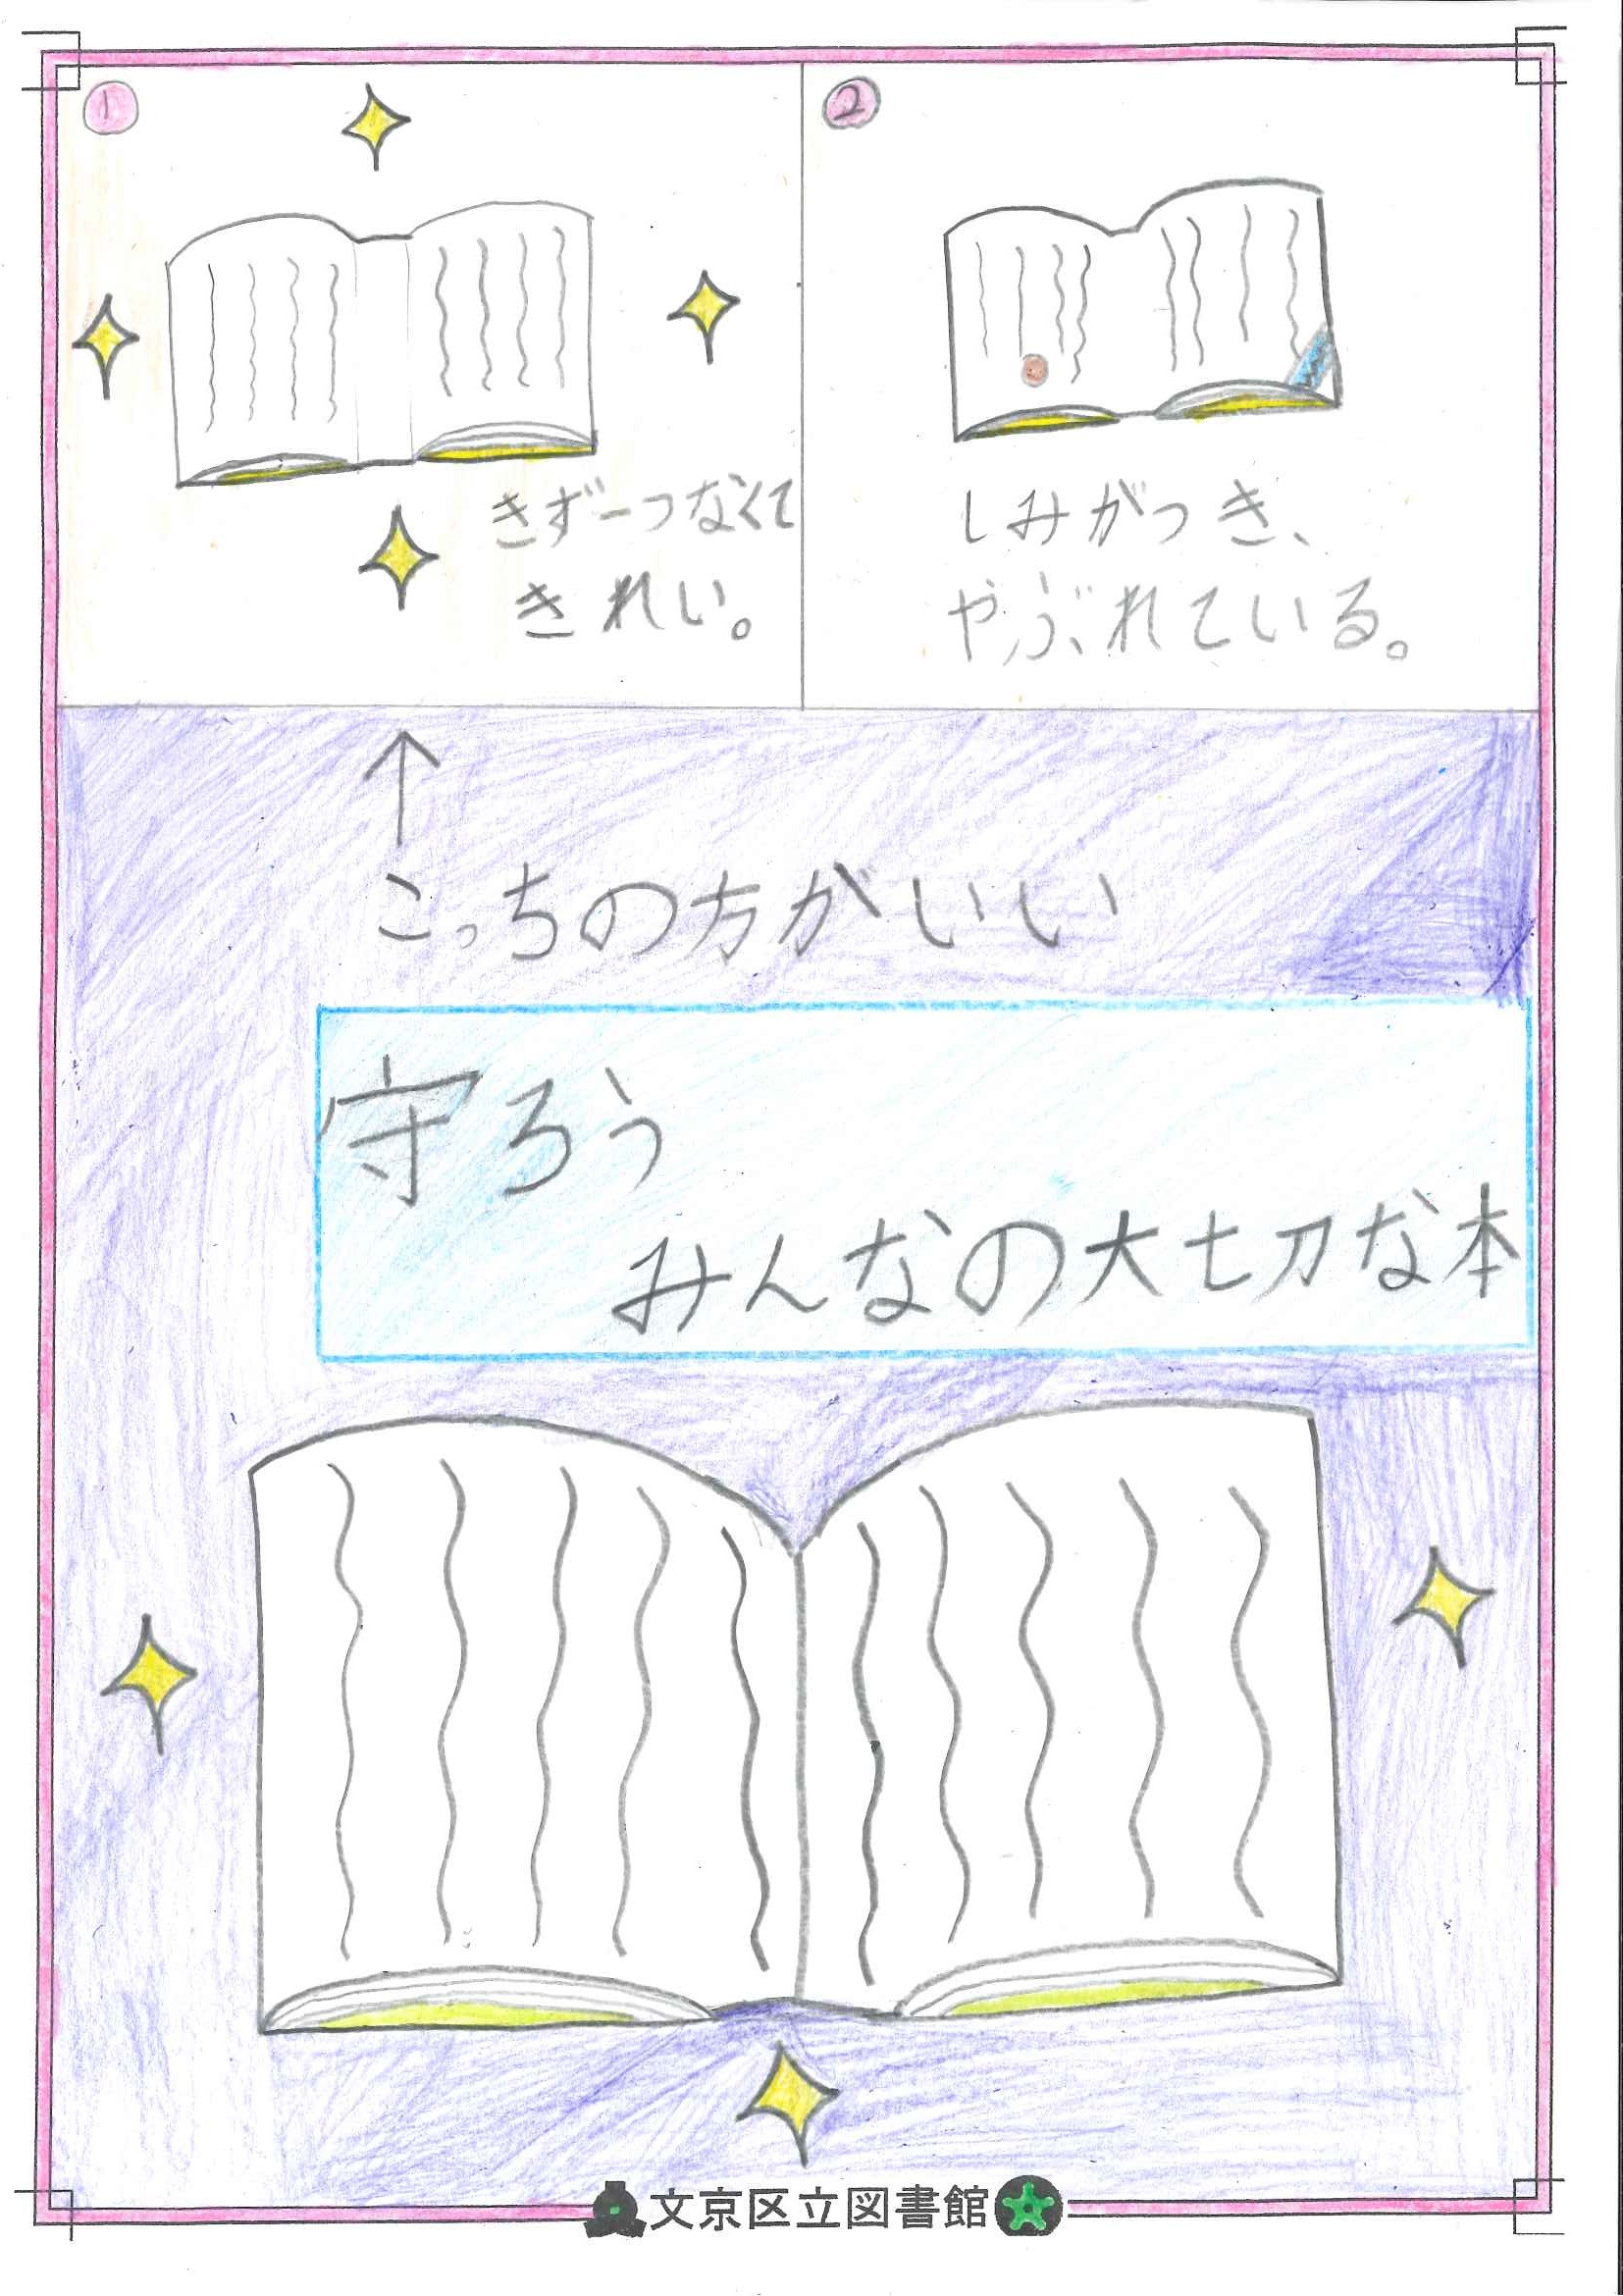 1
きず一つなくて
きれい。
2
しみがつき、
やぶれている。
こっちの方がいい
守ろう
みんなの大切な本
文京区立図書館